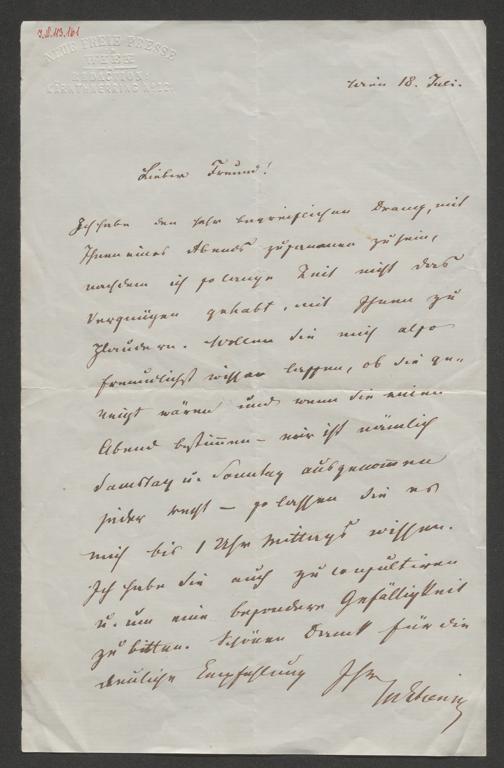 NEUE FREIE PRESSE
WIEN
REDACTION:
KÄRNTHNERRING No.
Wien 18. Juli.
Lieber Freund!
Ich habe den sehr begreiflichen Drang, mit
Ihnen eines Abends zusammen zu sein,
nachdem ich so lange Zeit nicht das
Vergnügen gehabt, mit Ihnen zu
plaudern. Wollen Sie mich also
freundlichst wissen lassen, ob Sie ge-
neigt wären und wenn Sie einen
Abend bestimmen – mir ist nämlich
Samstag u. Sonntag ausgenommen
jeder recht – so lassen Sie es
mich bis 1 Uhr Mittags wissen.
Ich habe Sie auch zu consultiren
u. um eine besondere Gefälligkeit
zu bitten. Schönen Dank für die
neuliche Empfehlung Ihr